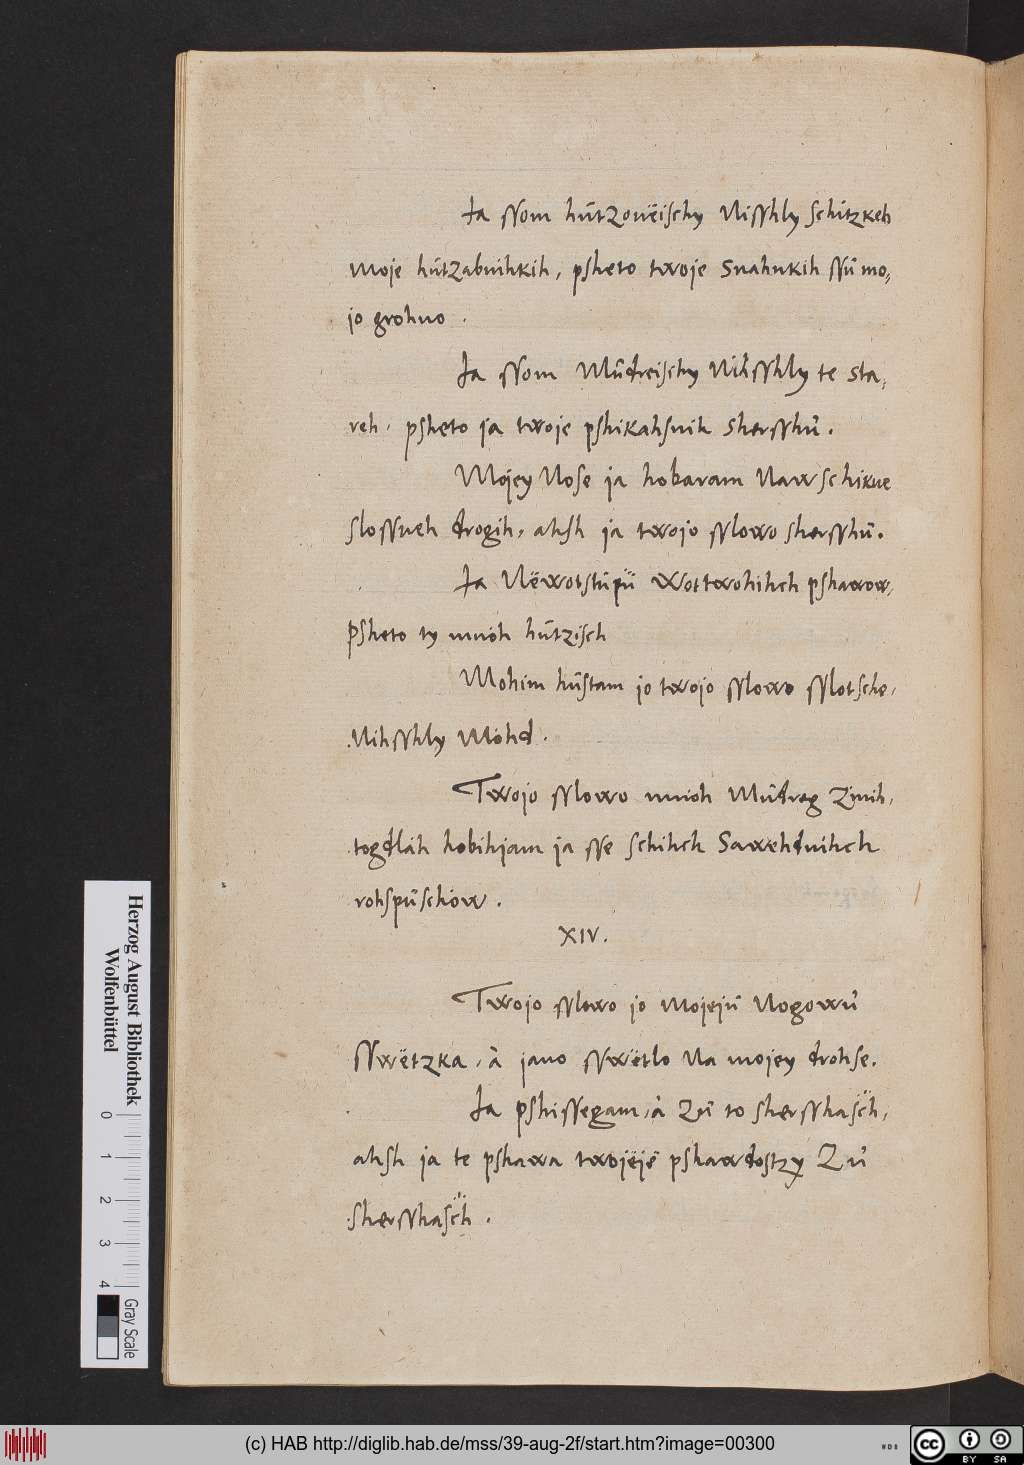 Ja ssom hűtzonëischy Nisshly schitzkeh
moje hútzabnihkih, psheto twoje snahnkih ssű mo,
jo grohno.
Ja ssom Műdreischy Nihsshly te sta,
reh, psheto ja twoje pshikahsnih shersshű.
Mojey Nose ja hobaram Nawschikne
slossneh drogih, ahsh ja twojo sslowo shersshű.
Ja Nëwotstúpű wottwohihch pshawow,
psheto ty mnioh hűtzisch
Mohim hűstam jo twojo sslowo sslotsche,
Nihsshly Mohd.
Twojo sslowo mnioh Műdreg Zinih,
togdlah hobihjam ja sse schihch Sawehdnihch
rohspűschow.
XIV.
Twojo sslowo jo mojejű Nogowű
Sswëtzka, à jano sswëtlo Na mojey drohse.
Ja pshissegam, à Zű to shersshasch,
ahsh ja te pshawa twojëjë pshawdostzy Zű
shersshasch.
Herzog August Bibliothek
Wolfenbüttel
0 1 2 3 4
Gray Scale
(c) HAB http://diglib.hab.de/mss/39-aug-2f/start.htm?image=00300
WDB
cc
BY SA